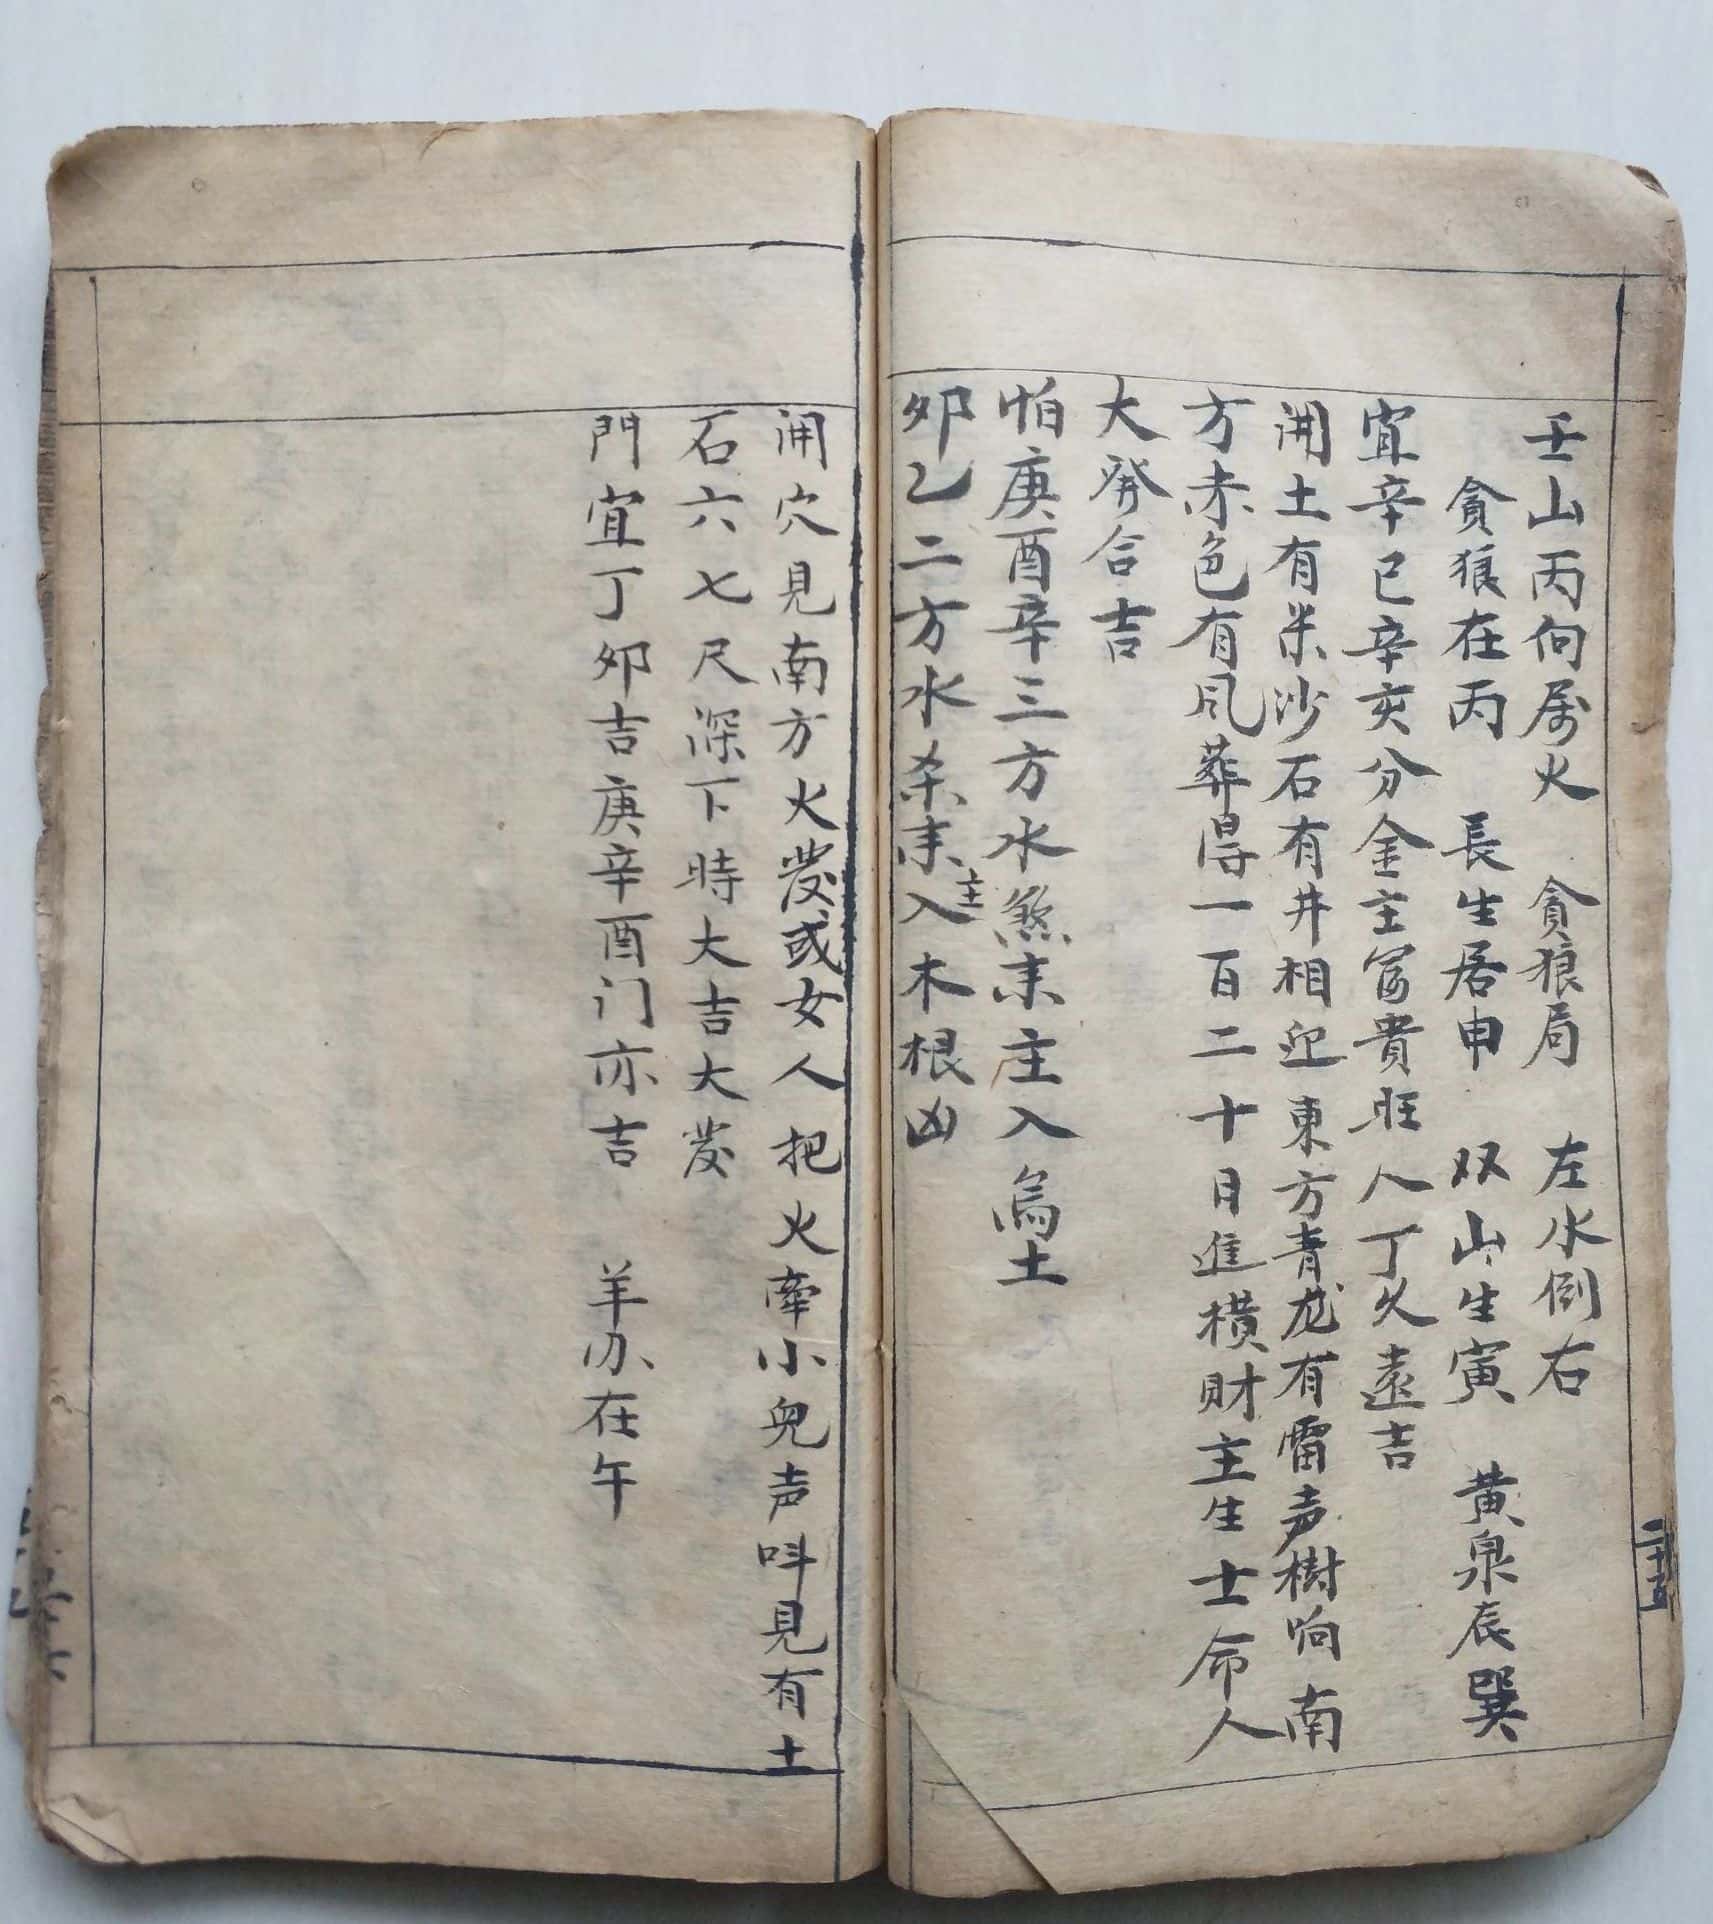 壬山丙向属火　貪狼局　左水倒右
貪狼在丙　長生居申　双山生寅　黄泉辰巽
宜辛巳辛亥分金主富貴旺人丁久遠吉
開土有米沙石有井相迎東方青龙有雷声樹响南
方赤色有風葬得一百二十月進横財主生士命人
大發合吉
怕庚酉辛三方水煞来主入烏土
夘乙二方水杀来主入木根凶
二十五
開穴見南方火發或女人把火牽小兒声呌見有土
石六七尺深下時大吉大發
門宜丁夘吉庚辛酉门亦吉　羊刃在午